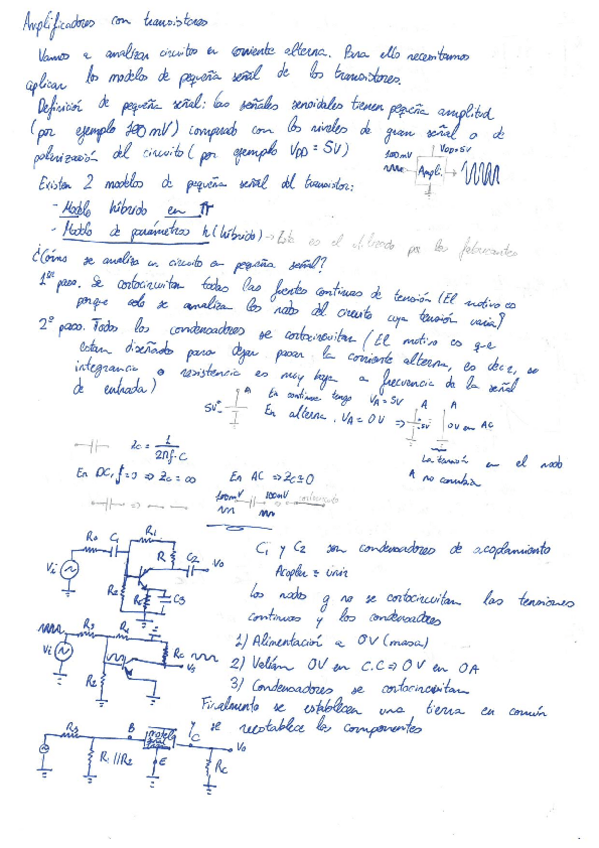 Amplificadores con transistores
Vamos a analizar circuitos en corriente alterna. Para ello necesitamos
aplicar los modelos de pequeña señal de los transistores.
Definición de pequeña señal: las señales senoidales tienen pequeña amplitud
(por ejemplo 100 mV) comparado con los niveles de gran señal o de
polarización del circuito (por ejemplo VDD = 5V)
100mV
VDD=5V
Ampli.
Existen 2 modelos de pequeña señal del transistor:
- Modelo híbrido en π
- Modelo de parámetros h (híbrido) → Este es el por los fabricantes
¿Cómo se analiza un circuito en pequeña señal?
1er paso. Se cortocircuitan todas las fuentes continuas de tensión (El motivo es
porque solo se analiza los nodos del circuito cuya tensión varia)
2º paso. Todos los condensadores se cortocircuitan (El motivo es que
estan diseñados para dejar pasar la corriente alterna, es decir, su
o resistencia es muy baja a frecuencia de la señal
de entrada)
5V
A
En continua tengo VA = 5V
En alterna, VA = 0V ⇒
A
5V
A
0V en AC
La tensión en el nodo
A no cambia
Zc = 1/2πf·C
En DC, f=0 ⇒ Zc = ∞
En AC ⇒ Zc ≅ 0
100mV
100mV
R0 C1 R1
R
C2
Vo
Vi
R2
C3
C1 y C2 son condensadores de acoplamiento
Acoplar = unir
Los nodos q no se cortocircuitan las tensiones
continuas y los condensadores
1) Alimentación a 0V (masa)
2) Valían 0V en C.C ⇒ 0V en CA
3) Condensadores se cortocircuitan
Finalmente se establecen una tierra en común
y se reestablece los componentes
Vi
R1
Rc
R2
Rs
B
C
Vo
R1//R2
E
Rc